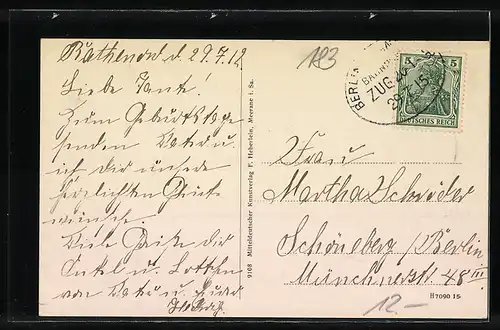 Rathenow d. 29.7.12
183
Liebe Tante!
Zum Geburtstage
senden Vater u.
ich dir unsere
herzlichsten Glück-
wünsche.
Viele Grüße dir
Onkel u. Lottchen
von Vater u.
BERLIN
BAHNPOST
ZUG
29.7.15
5
DEUTSCHES REICH
Frau
Martha Schröder
Schöneberg/Berlin
Münchnerstr. 48 III
12.-
9108 Mitteldeutscher Kunstverlag F. Heberlein, Meerane i. Sa.
H7090 15